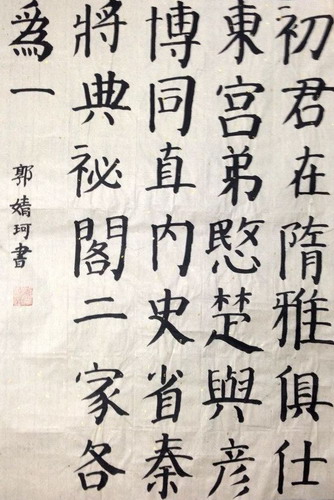 初君在隋雅俱仕
東宮弟愍楚與彦
博同直内史省秦
將典祕閣二家各
爲一
郭婧珂書